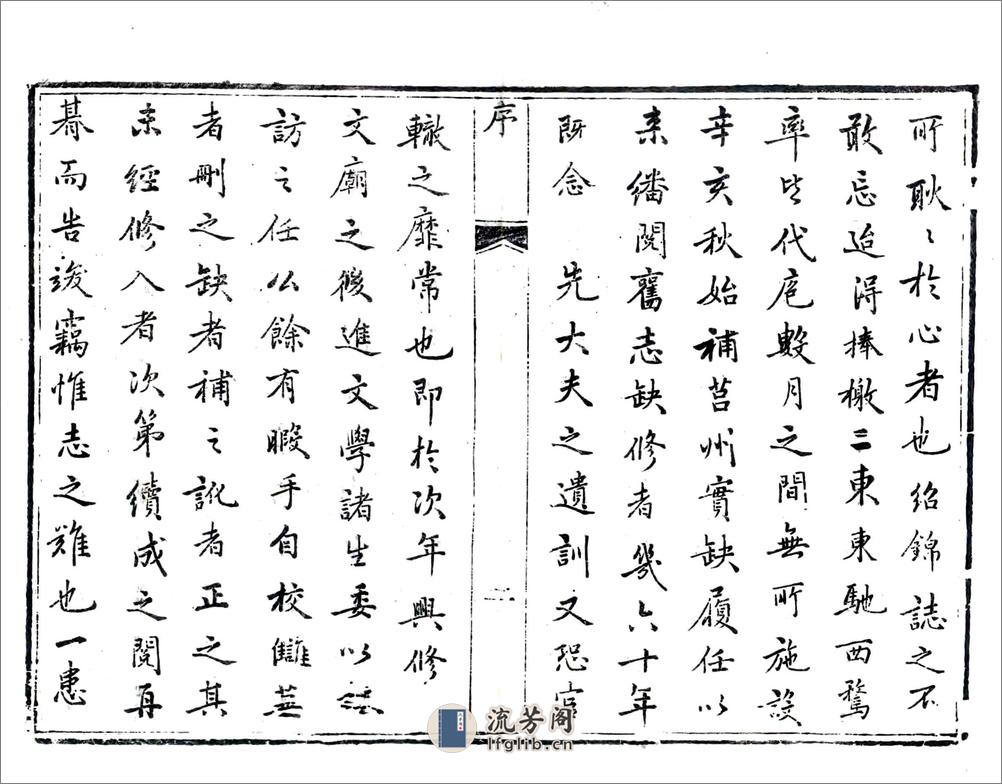 所耿〻於心者也紹錦誌之不
敢忘迨得捧檄二東東馳西騖
率皆代庖數月之間無所施設
辛亥秋始補莒州實缺履任以
来繙閱舊志缺修者幾六十年
既念 先大夫之遺訓又恐宦
序 二
轍之靡常也即於次年興修
文廟之後進文學諸生委以
訪之任公餘有暇手自校讎蕪
者刪之缺者補之訛者正之其
未經修入者次第續成之閱再
朞而告竣竊惟志之難也一患
流芳阁
lfglib.cn